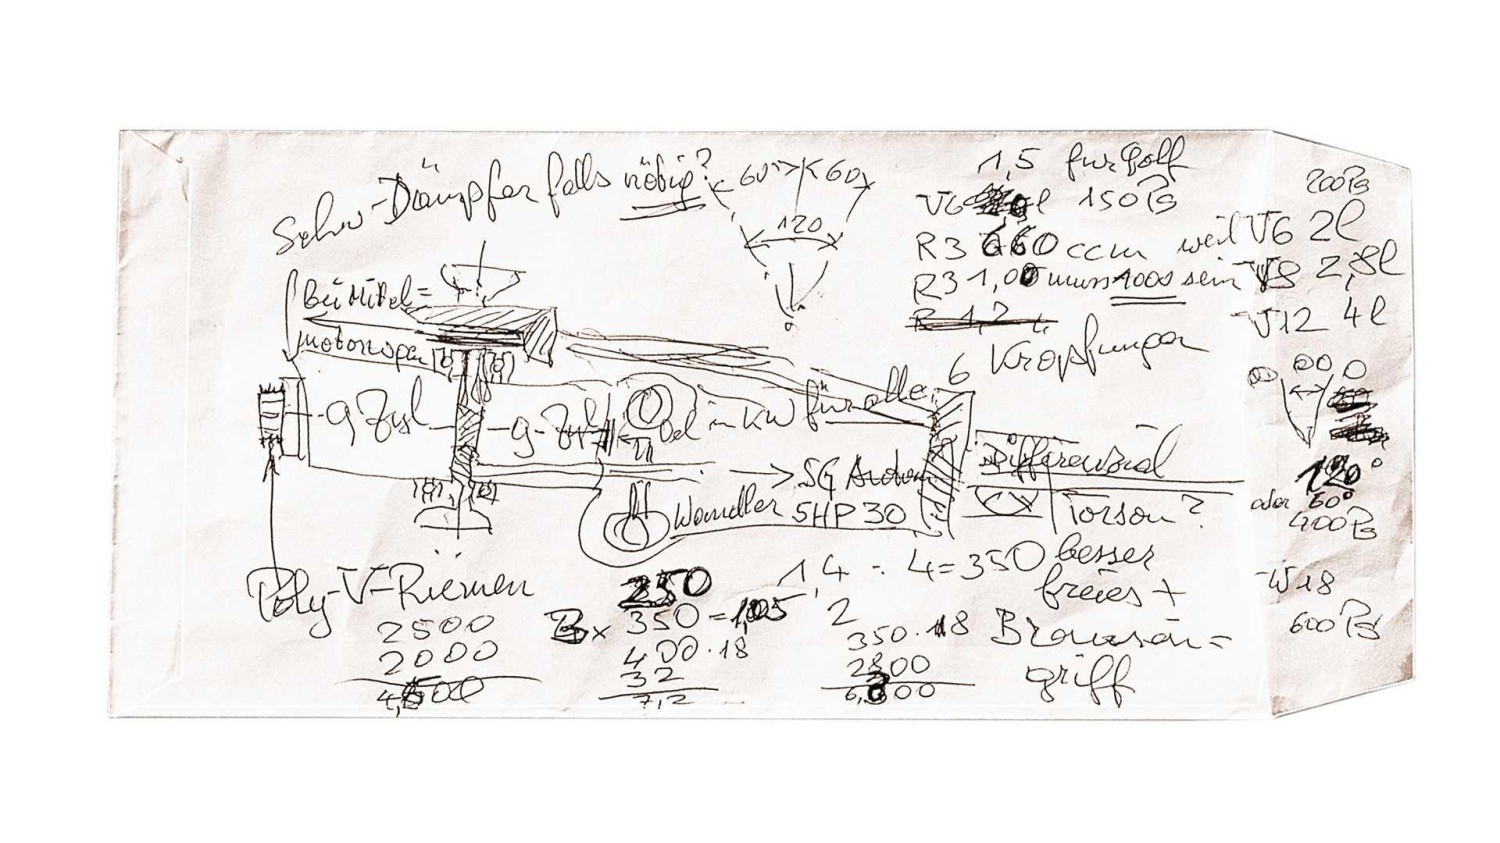 Schw-Dämpfer falls nötig?
60° 60
120
1,5 für Golf
V6 l 150 PS
R3 660 ccm weil V6 2l
R3 1,00 muss 1000 sein V8 2,8l
R 1,2 L
V12 4l
200 PS
Bei Mittel=
motorzapf
6 Kröpfungen
9 Zyl
9-Zyl
in KW für alle
→ 5G
Wandler 5HP30
Differenzial
Torsen?
120°
oder 60°
400 PS
W18
600 PS
Poly-V-Riemen
2500
2000
4,500
250
350 = 1,05
400 · 18
32
7,2
1,4 : 4 = 350 besser
freies +
2
350 · 18
2800
6,300
griff